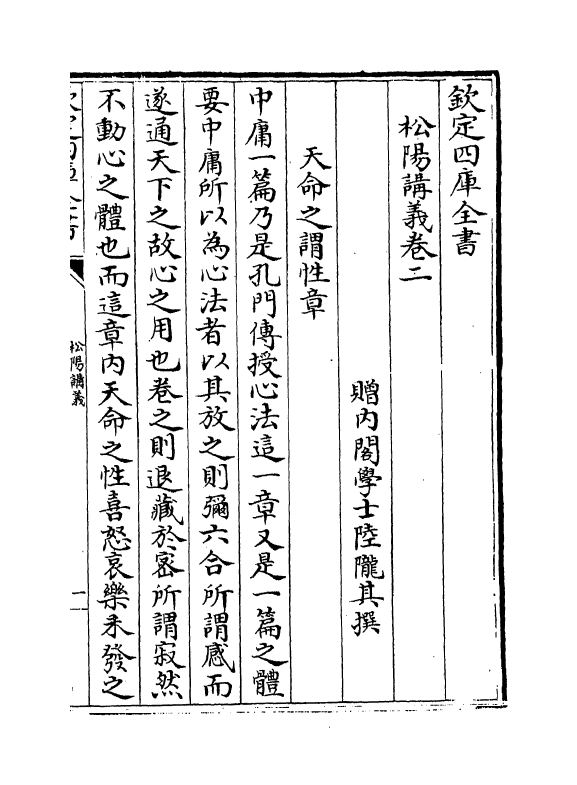 欽定四庫全書
松陽講義卷二
贈内閣學士陸隴其撰
天命之謂性章
中庸一篇乃是孔門傳授心法這一章又是一篇之體
要中庸所以為心法者以其放之則彌六合所謂感而
遂通天下之故心之用也卷之則退藏於密所謂寂然
不動心之體也而這章内天命之性喜怒哀樂未發之
欽定四庫全書
松陽講義
一